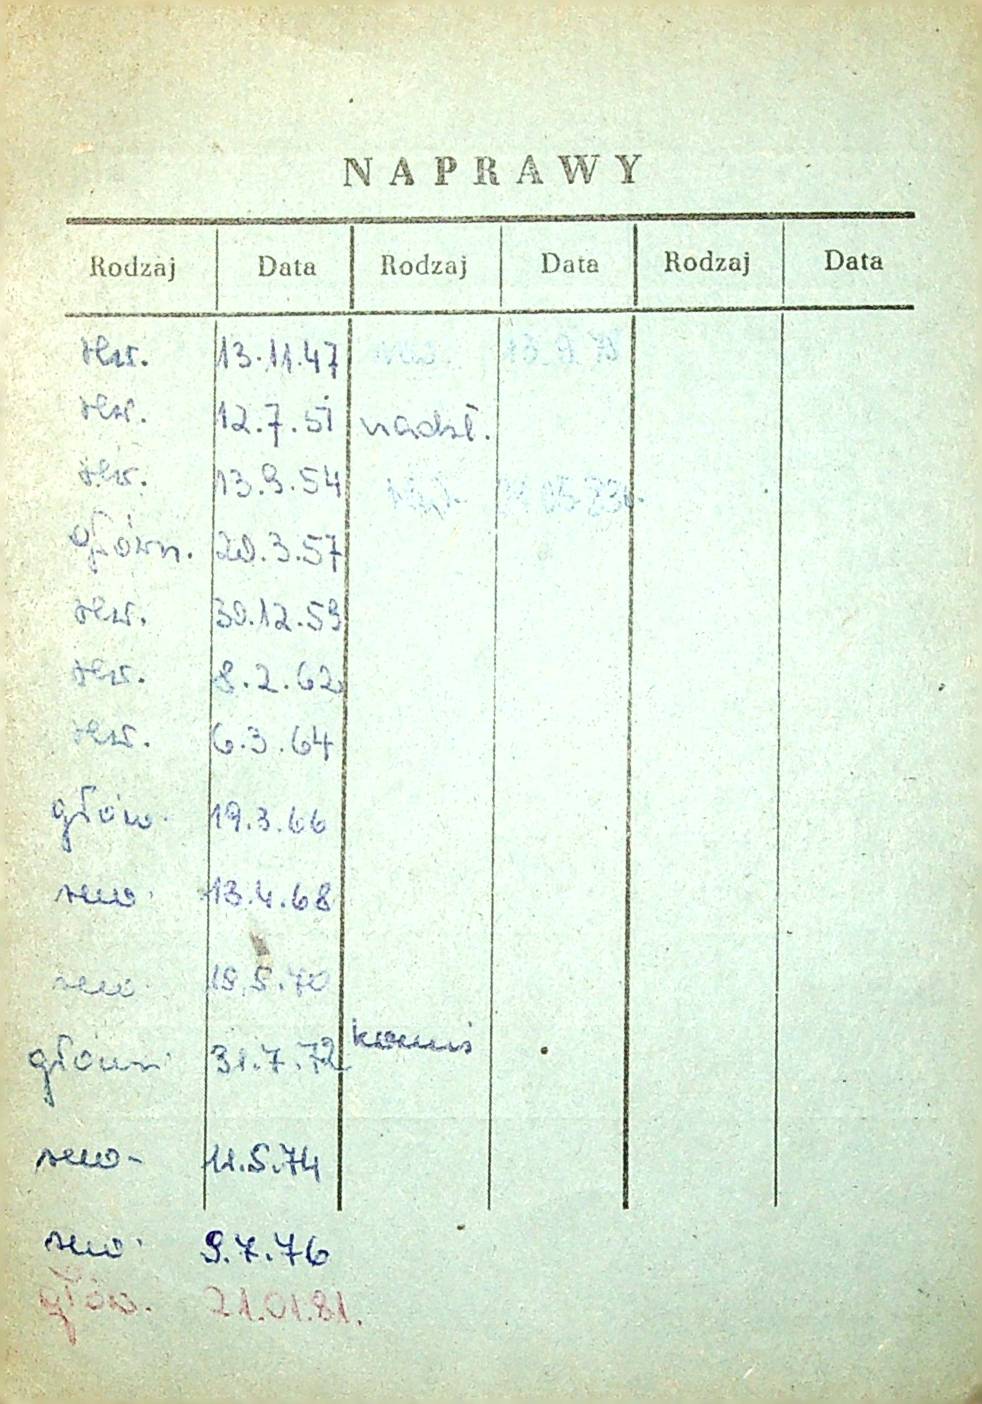 NAPRAWY
Rodzaj Data Rodzaj Data Rodzaj Data
rew. 13.11.47 rew. 13.9.78
rew. 12.7.51 nadzł.
rew. 13.9.54
główn. 20.3.57
rew. 30.12.59
rew. 8.2.62
rew. 6.3.64
głów. 19.3.66
rew. 13.4.68
rew. 18.5.70
główn. 31.7.72
rew- 11.5.74
rew. 9.7.76
głów. 21.01.81.